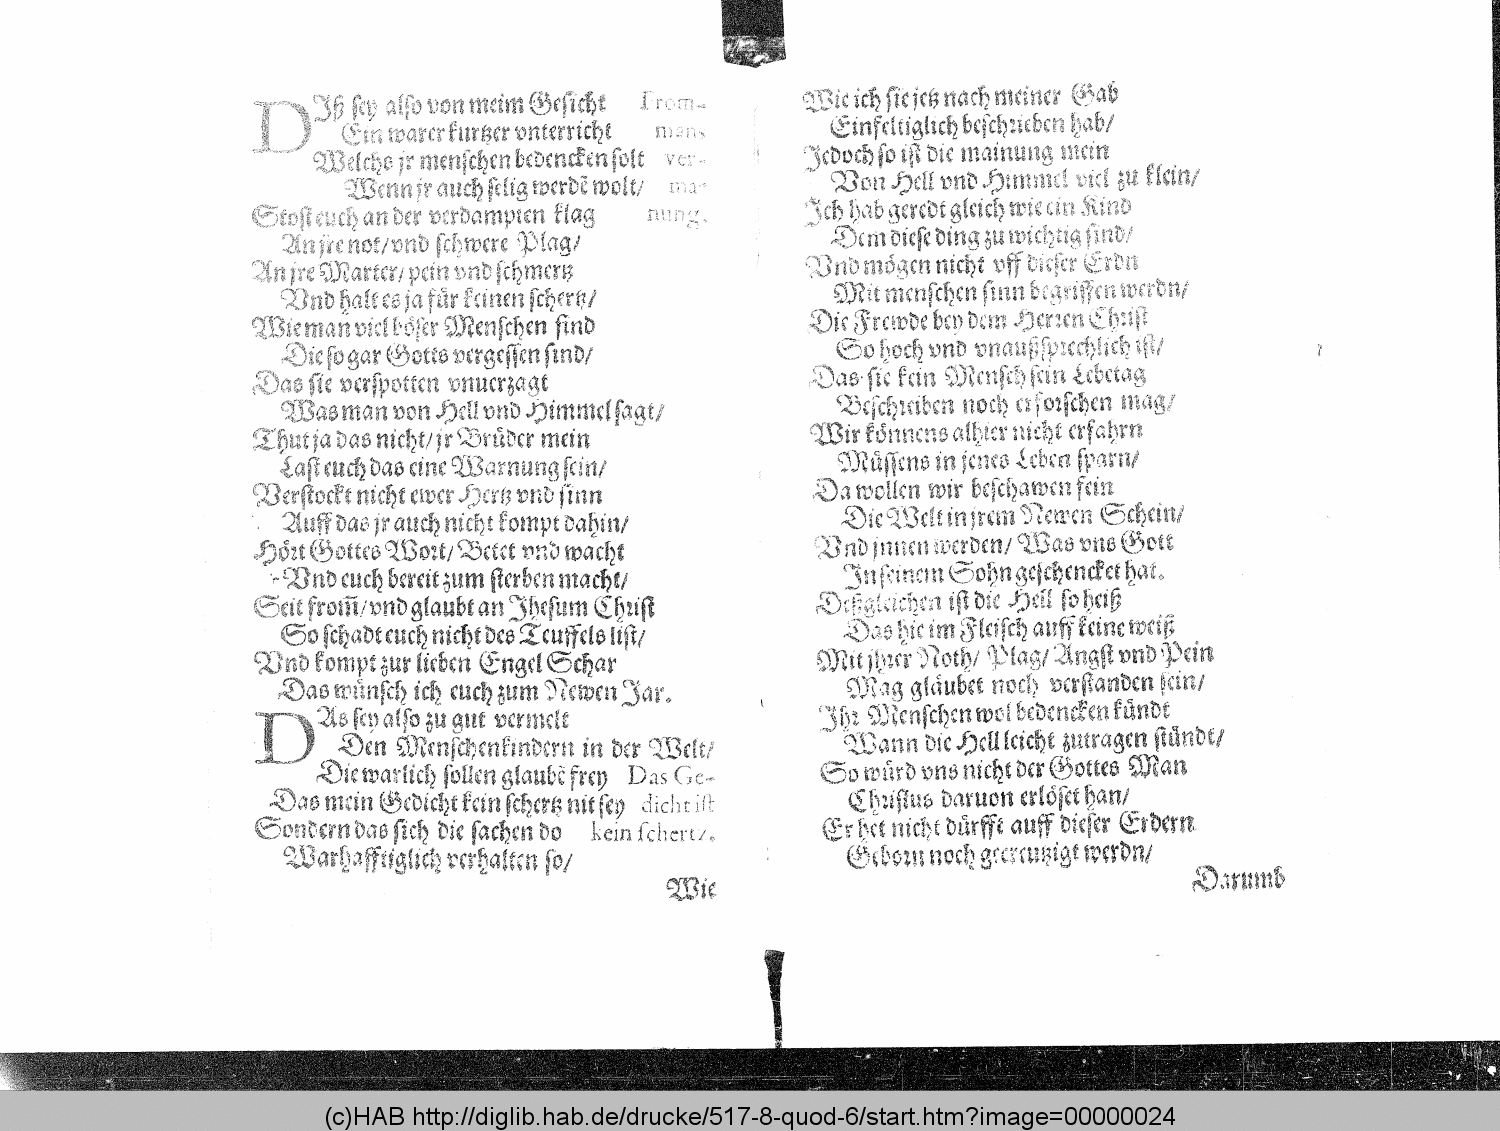 DJß sey also von meim Gesicht
Ein warer kurtzer vnterricht
Welchs jr menschen bedencken solt
Wenn jr auch selig werdē wolt/
From-
mans
ver-
ma-
nung.
Stost euch an der verdampten klag
An jre not/vnd schwere Plag/
An jre Marter/pein vnd schmertz
Vnd halt es ja für keinen schertz/
Wie man viel böser Menschen find
Die so gar Gotts vergessen sind/
Das sie verspotten vnuerzagt
Was man von Hell vnd Himmel sagt/
Thut ja das nicht/jr Brüder mein
Last euch das eine Warnung sein/
Verstockt nicht ewer Hertz vnd sinn
Auff das jr auch nicht kompt dahin/
Hört Gottes Wort/Betet vnd wacht
Vnd euch bereit zum sterben macht/
Seit from̄/vnd glaubt an Jhesum Christ
So schadt euch nicht des Teuffels list/
Vnd kompt zur lieben Engel Schar
Das wünsch ich euch zum Newen Jar.
DAs sey also zu gut vermelt
Den Menschenkindern in der Welt/
Die warlich sollen glaubē frey
Das mein Gedicht kein schertz nit sey
Sondern das sich die sachen do
Das Ge-
dicht ist
kein schertz.
Warhafftiglich verhalten so/
Wie
Wie ich sie jetz nach meiner Gab
Einfeltiglich beschrieben hab/
Jedoch so ist die mainung mein
Von Hell vnd Himmel viel zu klein/
Jch hab geredt gleich wie ein Kind
Dem diese ding zu wichtig sind/
Vnd mögen nicht vff dieser Erdn
Mit menschen sinn begriffen werdn/
Die Frewde bey dem Herren Christ
So hoch vnd vnaußsprechlich ist/
Das sie kein Mensch sein Lebetag
Beschreiben noch erforschen mag/
Wir können s alhier nicht erfahrn
Müssens in jenes Leben sparn/
Da wollen wir beschawen fein
Die Welt in jrem Newen Schein/
Vnd jnnen werden/Was vns Gott
Jn seinem Sohn geschencket hat.
Deßgleichen ist die Hell so heiß
Das hie im Fleisch auff keine weiß
Mit jhrer Noth/Plag/Angst vnd Pein
Mag gläubet noch verstanden sein/
Jhr Menschen wol bedencken kündt
Wann die Hell leicht zutragen stündt/
So würd vns nicht der Gottes Man
Christus daruon erlöset han/
Er het nicht dürfft auff dieser Erdern
Geborn noch gecreutzigt werdn/
Darumb
(c)HAB http://diglib.hab.de/drucke/517-8-quod-6/start.htm?image=00000024